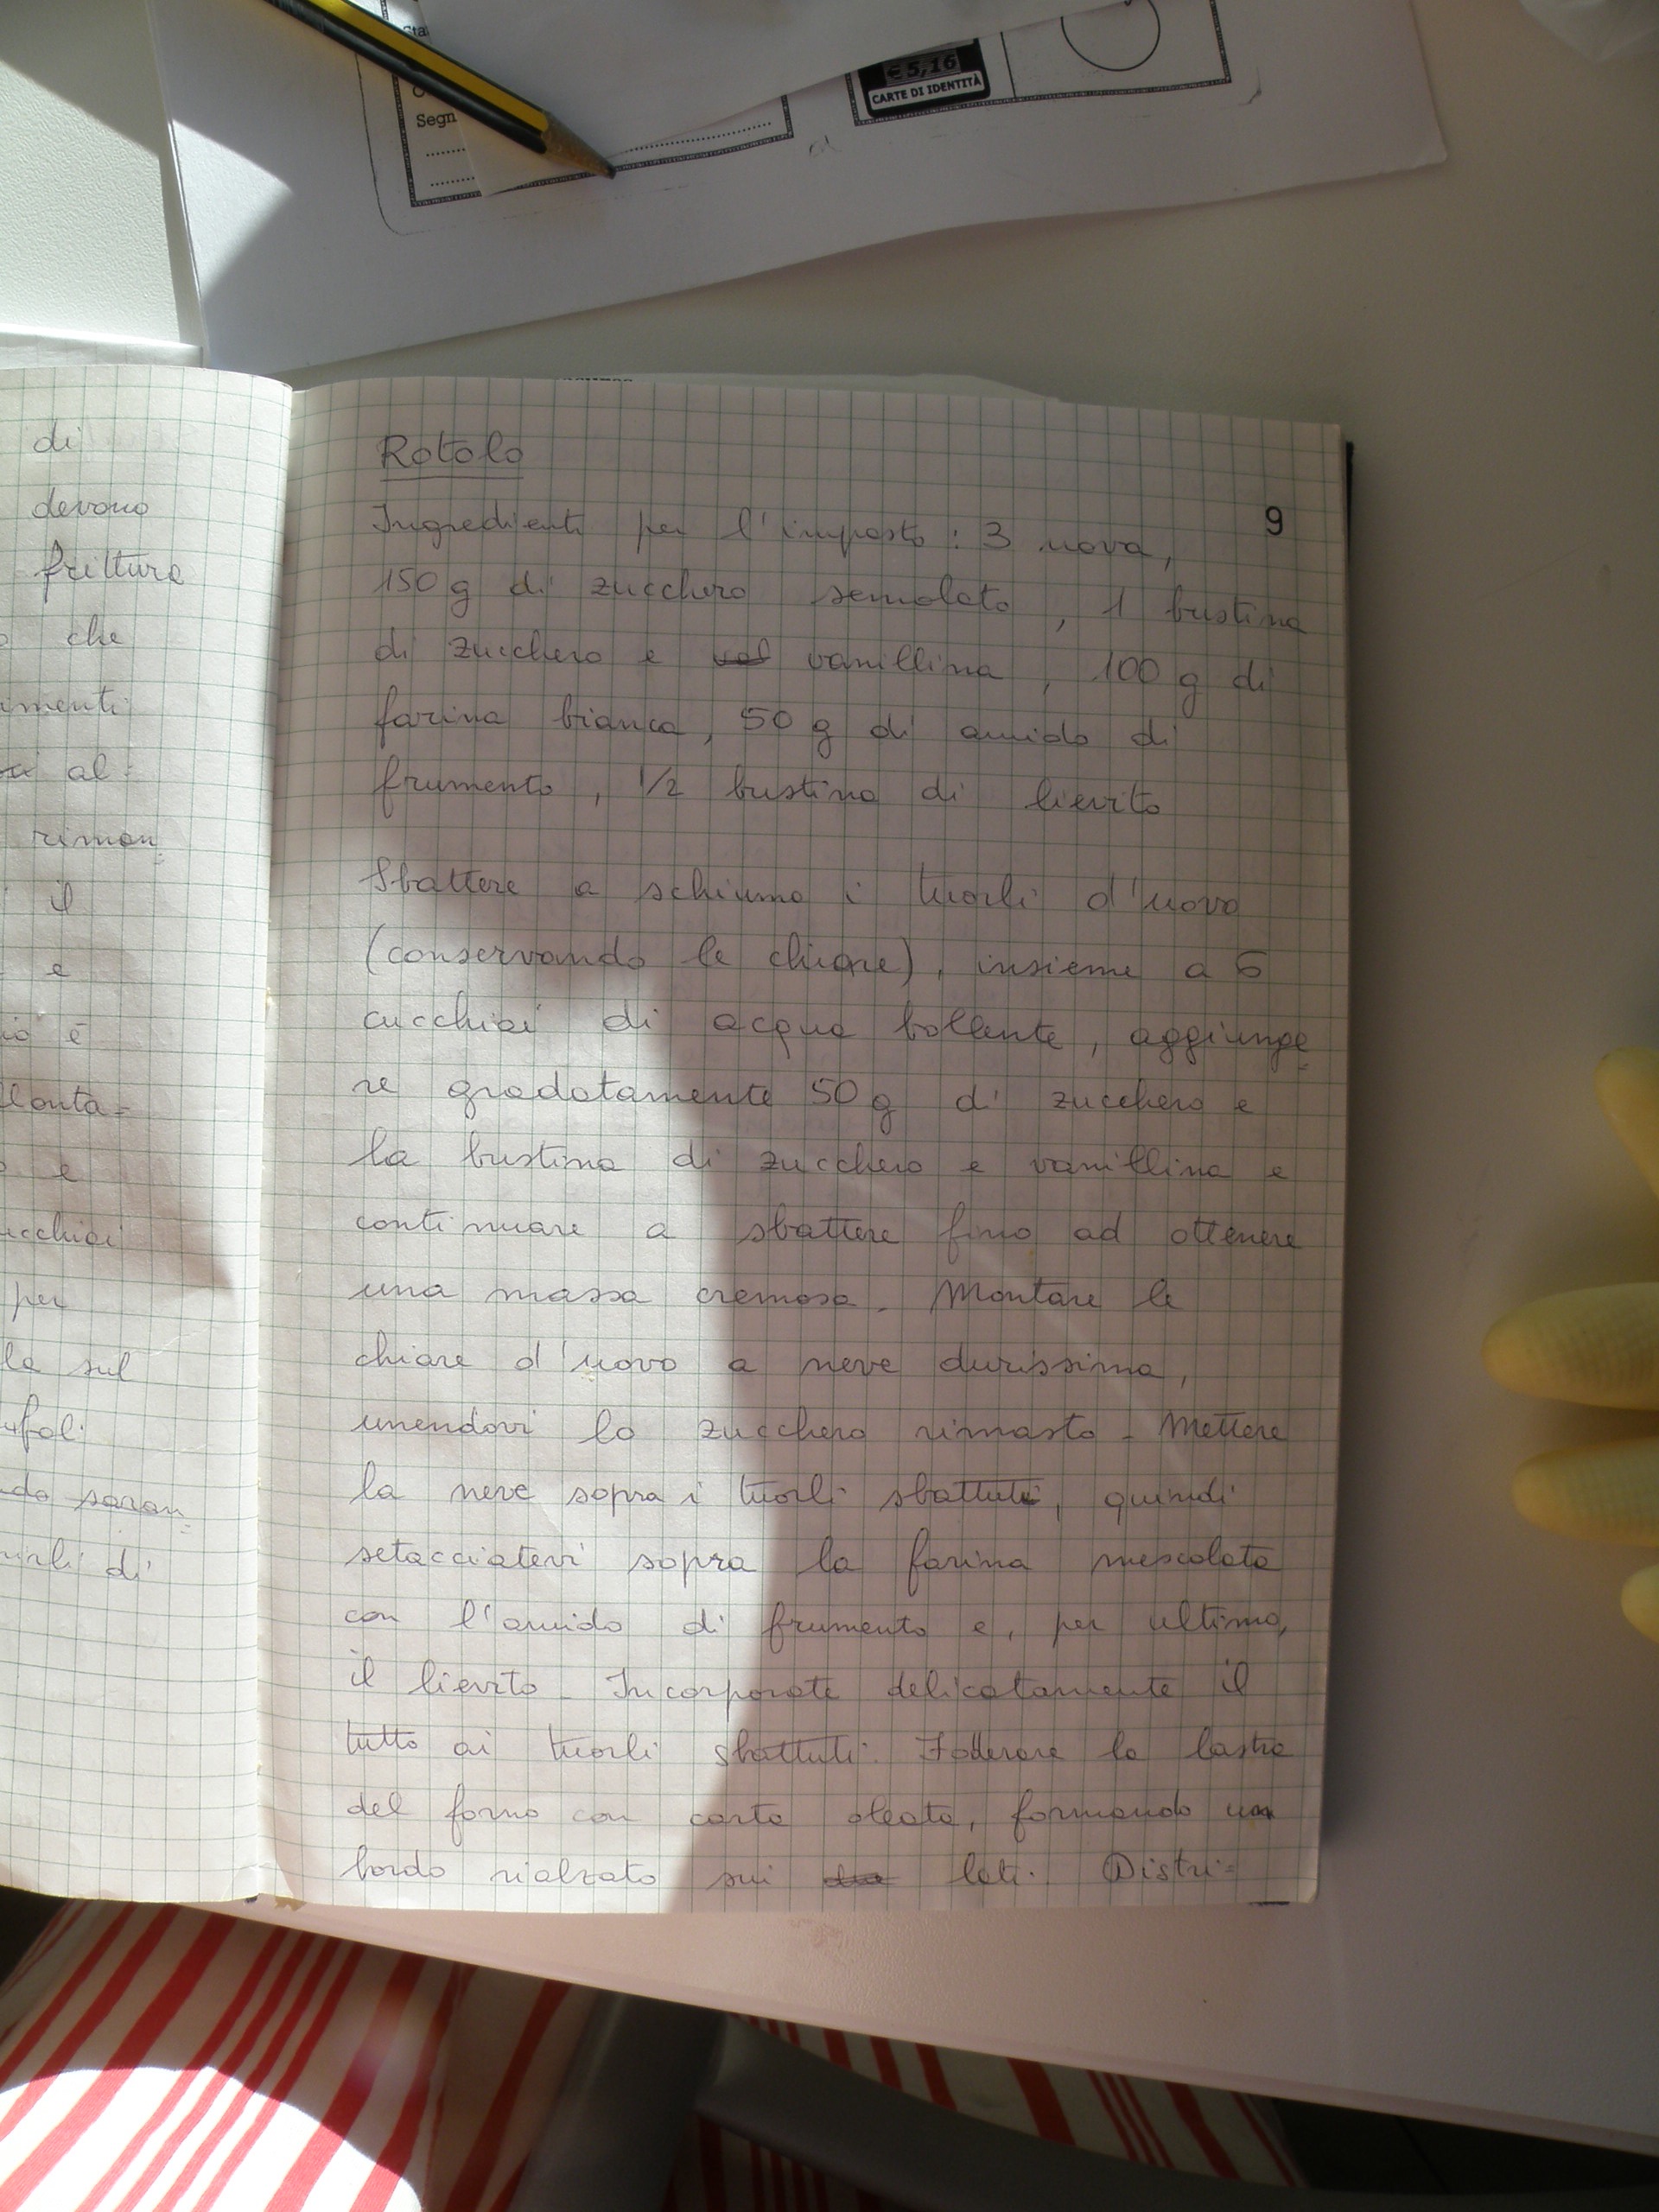 Sta
Segn
€ 5,16
CARTE DI IDENTITÀ
di
devono
frittura
che
imenti
al=
riman=
il
e
è
lonta=
e
ucchiai
per
le sul
ufoli
do saran=
di
Rotolo
9
Ingredienti per l'imposto : 3 uova,
150 g di zucchero semolato, 1 bustina
di zucchero e val vanillina, 100 g di
farina bianca, 50 g di amido di
frumento, 1/2 bustina di lievito
Sbattere a schiuma i tuorli d'uova
(conservando le chiare), insieme a 6
cucchiai di acqua bollente, aggiunge=
re gradatamente 50 g di zucchero e
la bustina di zucchero e vanillina e
continuare a sbattere fino ad ottenere
una massa cremosa. Montare le
chiare d'uovo a neve durissima,
unendovi lo zucchero rimasto - Mettere
la neve sopra i tuorli sbattuti, quindi
setacciatevi sopra la farina mescolata
con l'amido di frumento e, per ultimo,
il lievito - Incorporate delicatamente il
tutto ai tuorli sbattuti. Foderare la lastra
del forno con carta oleata, formando un
bordo rialzato sui due lati. Distri=